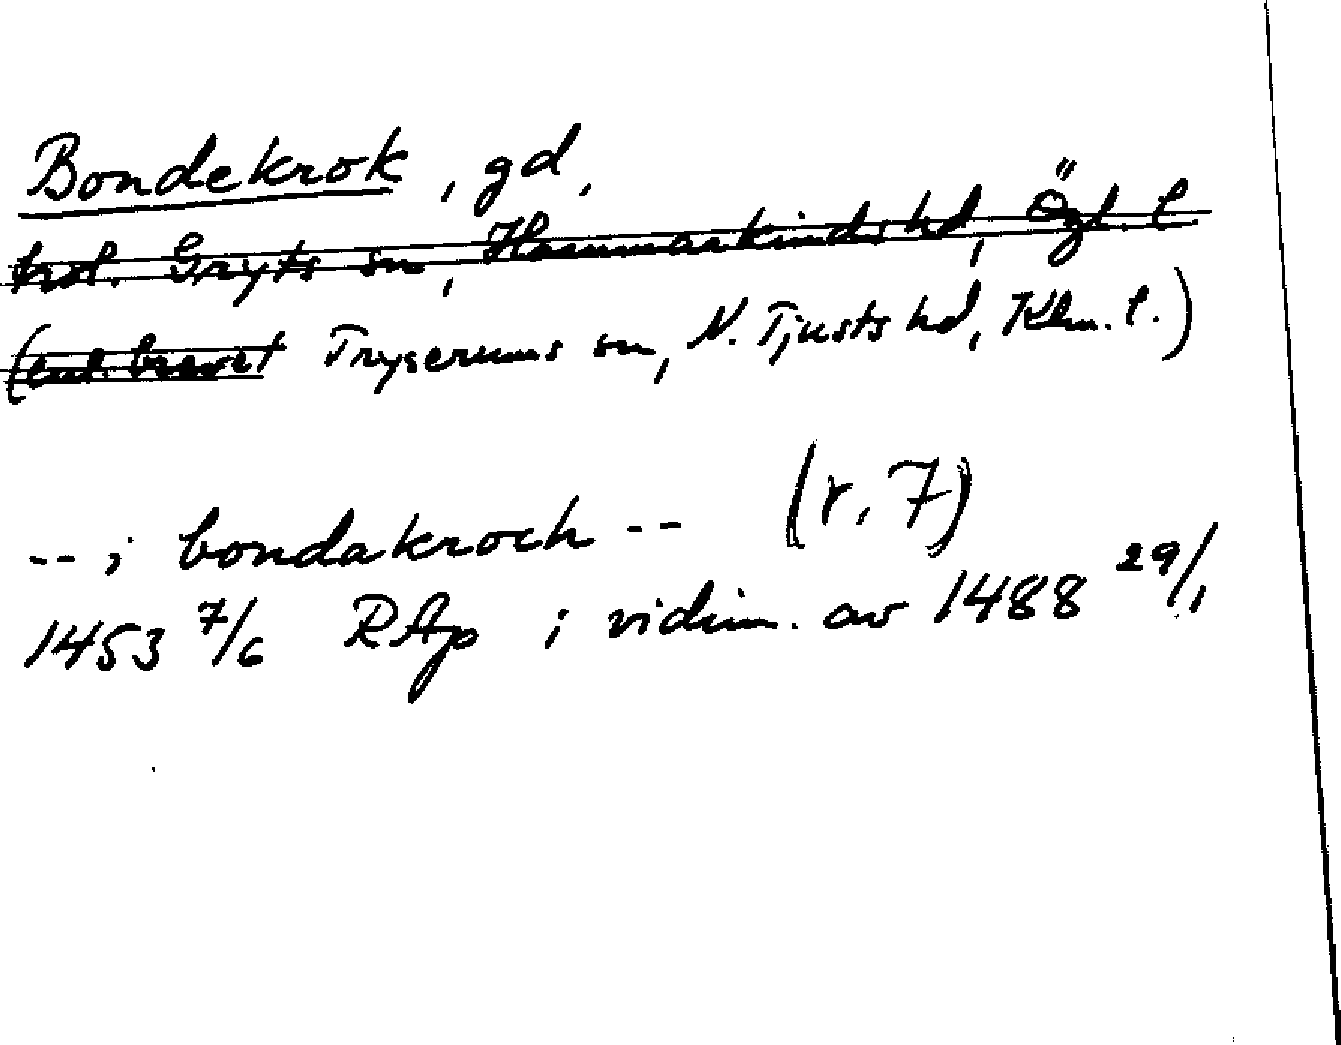 Bondekrok, gd,
trol. Gryts sn, Hammarkinds hd, Ögl. l
(enl. brevet Tryserums sn, N. Tjusts hd, Klm. l.)
-- i bondakroch -- (r. 7)
1453 7/6 RAp i vidim. av 1488 29/1